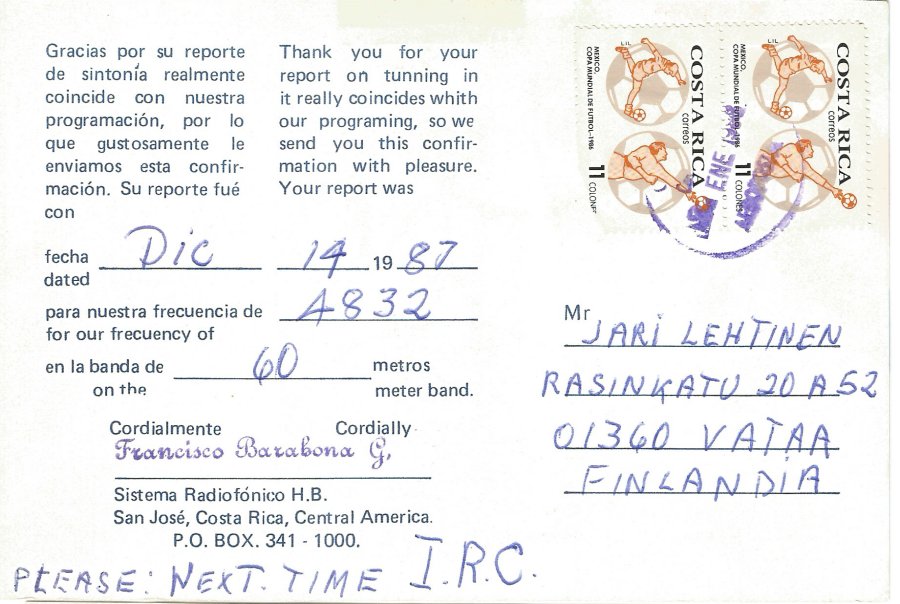 Gracias por su reporte
de sintonía realmente
coincide con nuestra
programación, por lo
que gustosamente le
enviamos esta confir-
mación. Su reporte fué
con
Thank you for your
report on tunning in
it really coincides whith
our programing, so we
send you this confir-
mation with pleasure.
Your report was
fecha Dic 14 1987
dated
para nuestra frecuencia de 4832
for our frecuency of
en la banda de 60 metros
on the meter band.
Cordialmente Cordially
Francisco Barabona G,
Sistema Radiofónico H.B.
San José, Costa Rica, Central America.
P.O. BOX. 341 - 1000.
PLEASE: NEXT. TIME I.R.C.
COSTA RICA
correos
LIL
MEXICO,
COPA MUNDIAL DE FUTBOL-1986
11 COLONES
COSTA RICA
correos
LIL
MEXICO,
COPA MUNDIAL DE FUTBOL-1986
11 COLONES
ENE
Mr JARI LEHTINEN
RASINKATU 20 A 52
01360 VATAA
FINLANDIA